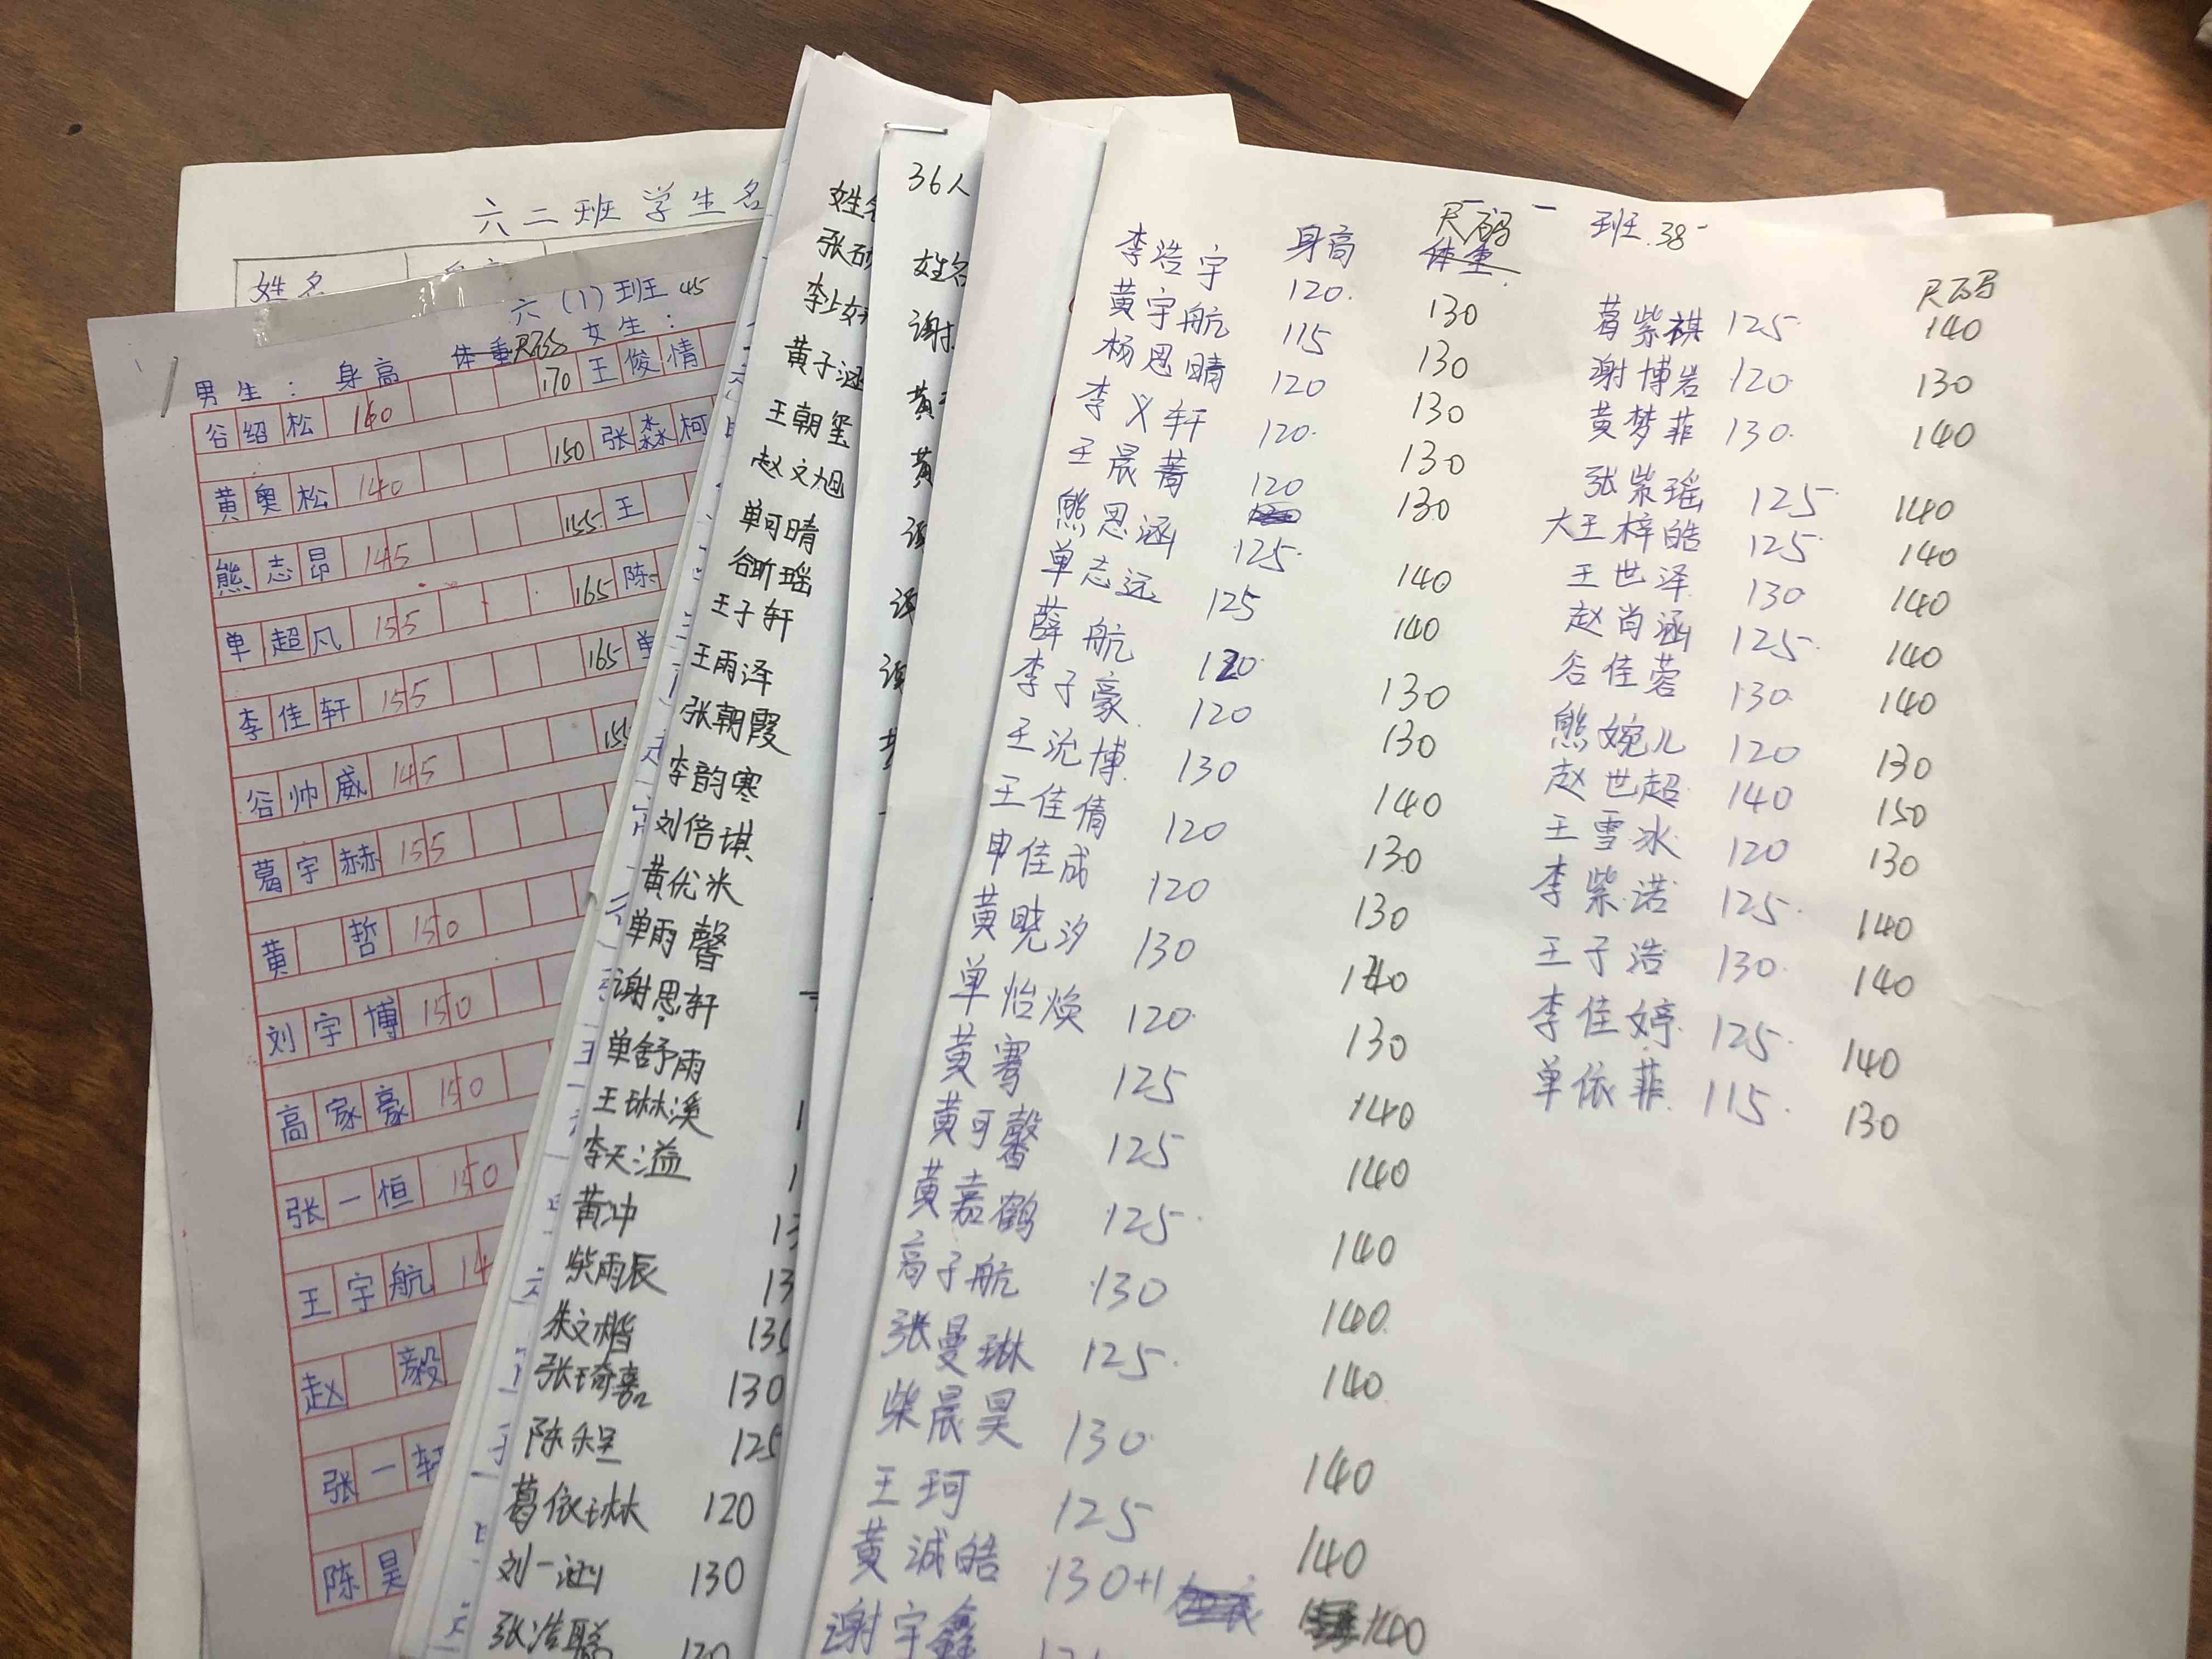 六二班学生名
姓名
六(1)班 45
男生: 身高 体重 尺码 女生:
谷绍松 160 170 王俊情
黄奥松 140 150 张淼柯
熊志昂 145 155 王
单超凡 155 165 陈
李佳轩 155 165 单
谷帅威 145 155
葛宇赫 155
黄哲 150
刘宇博 150
高家豪 150
张一恒 150
王宇航 14
赵毅
张一轩
陈昊
姓名
张
李
黄子涵
王朝玺
赵文旭
单可晴
谷昕瑶
王子轩
王雨泽
张朝霞
李韵寒
刘倍琪
黄优米
单雨馨
谢思轩
单舒雨
王琳溪
李天溢
黄冲 13
柴雨辰 13
朱文楷 130
张琦嘉 130
陈程 125
葛依琳 120
刘一 130
张浩聪 120
36人
姓名
谢
黄
黄
一班 38
身高 体重 尺码
李浩宇 120 130
黄宇航 115 130
杨思晴 120 130
李义轩 120 130
王晨菁 120 130
熊思涵 125 140
单志远 125 140
薛航 120 130
李子豪 120 130
王沇博 130 140
王佳倩 120 130
申佳成 120 130
黄晓汐 130 140
单怡焕 120 130
黄骞 125 140
黄可馨 125 140
黄嘉鹤 125 140
高子航 130 140
张曼琳 125 140
柴晨昊 130 140
王珂 125 140
黄诚皓 130+1 140
谢宇鑫
尺码
葛紫祺 125 140
谢博岩 120 130
黄梦菲 130 140
张紫瑶 125 140
大王梓皓 125 140
王世泽 130 140
赵肖涵 125 140
谷佳蓉 130 140
熊婉儿 120 130
赵世超 140 150
王雪冰 120 130
李紫诺 125 140
王子浩 130 140
李佳婷 125 140
单依菲 115 130